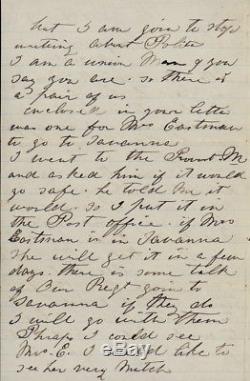 but I am goin to stop
writing about Poltix
I am a union Man if you
say you are. so there is
a pair of us
enclosed in your letter
was one for Mrs Eastman
to go to Savanna
I went to the Provost M
and asked him if it would
go safe. he told me it
would. so I put it in
the Post office. if Mrs
Eastman is in Savanna
She will get it in a few
days. there is some talk
of Our Regt goin to
Savanna if they do
I will go with them
Phraps I could see
Mrs. E. I should like to
see her very Mutch